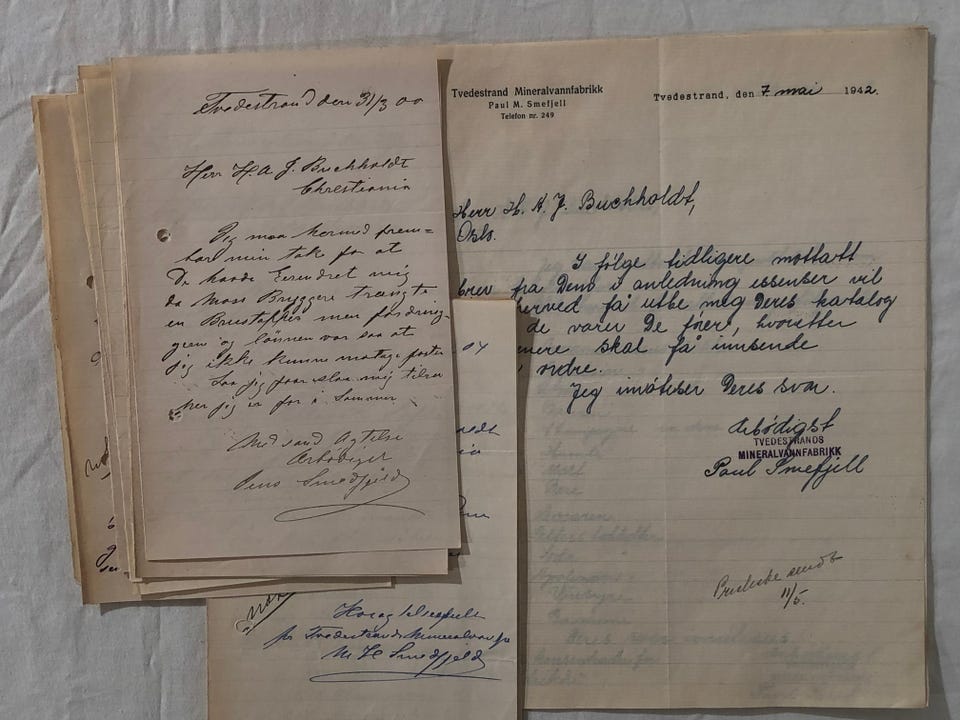 Tvedestrand den 31/3 00
Herr H. A. J. Buchholdt
Christiania
Jeg maa hermed frem=
bære min tak for at
De havde erindret mig
da Moss Bryggeri trængte
en Brustapper men fordring=
gen og lønnen var saa at
jeg ikke kunne motage posten
Saa jeg faar slaa mig tilro
her jeg er for i Sommer
Med sand Agtelse
Ærbødigst
Smedfjeld
Tvedestrand Mineralvannfabrikk
Paul M. Smefjell
Telefon nr. 249
Tvedestrand, den 7. mai 1942.
Herr H. A. J. Buchholdt,
Oslo.
I følge tidligere mottatt
brev fra Dem i anledning essenser vil
herved få utbe meg Deres katalog
de varer De fører, hvoretter
skal få innsende
ordre.
Jeg imøteser Deres svar.
Ærbødigst
TVEDESTRANDS
MINERALVANNFABRIKK
Paul Smefjell
Prisliste sendt
11/5.
Høiagtelsesfuldt
pr Tvedestrands Mineralvandfa
M H Smedfjeld